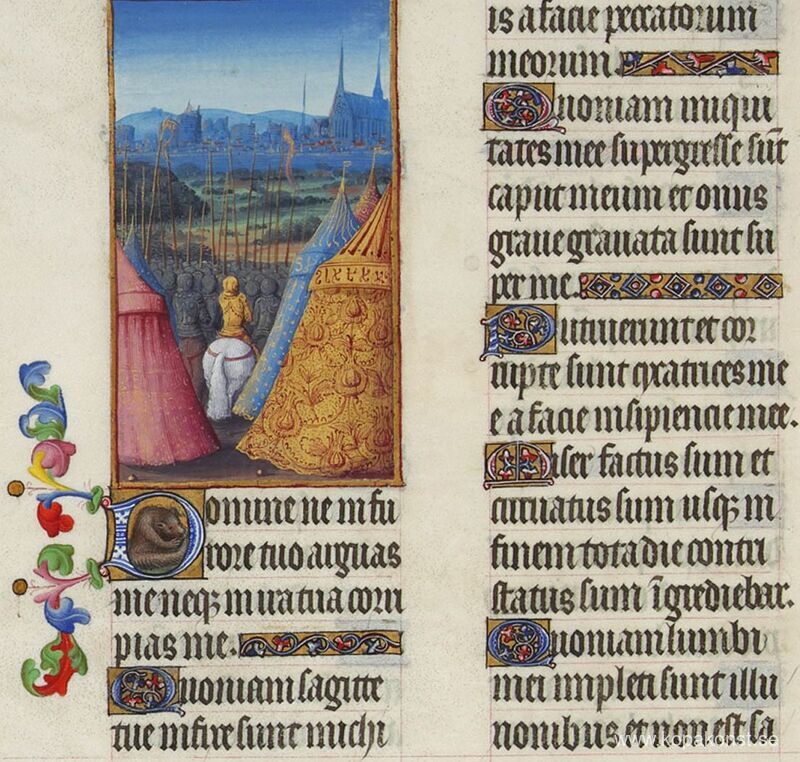 Domine ne in fu
rore tuo arguas
me neqꝫ in ira tua corri
pias me.
Quoniam sagitte
tue infixe sunt michi
is a facie peccatorum
meorum.
Quoniam iniqui
tates mee supergresse sūt
caput meum et onus
graue grauata sunt su
per me.
Putruerunt et cor
rupte sunt cicatrices me
e a facie insipiencie mee.
Miser factus sum et
curuatus sum usqꝫ in
finem tota die contri
status sum īgrediebar.
Quoniam lumbi
mei impleti sunt illu
sionibus et non est sa
www.kopakonst.se